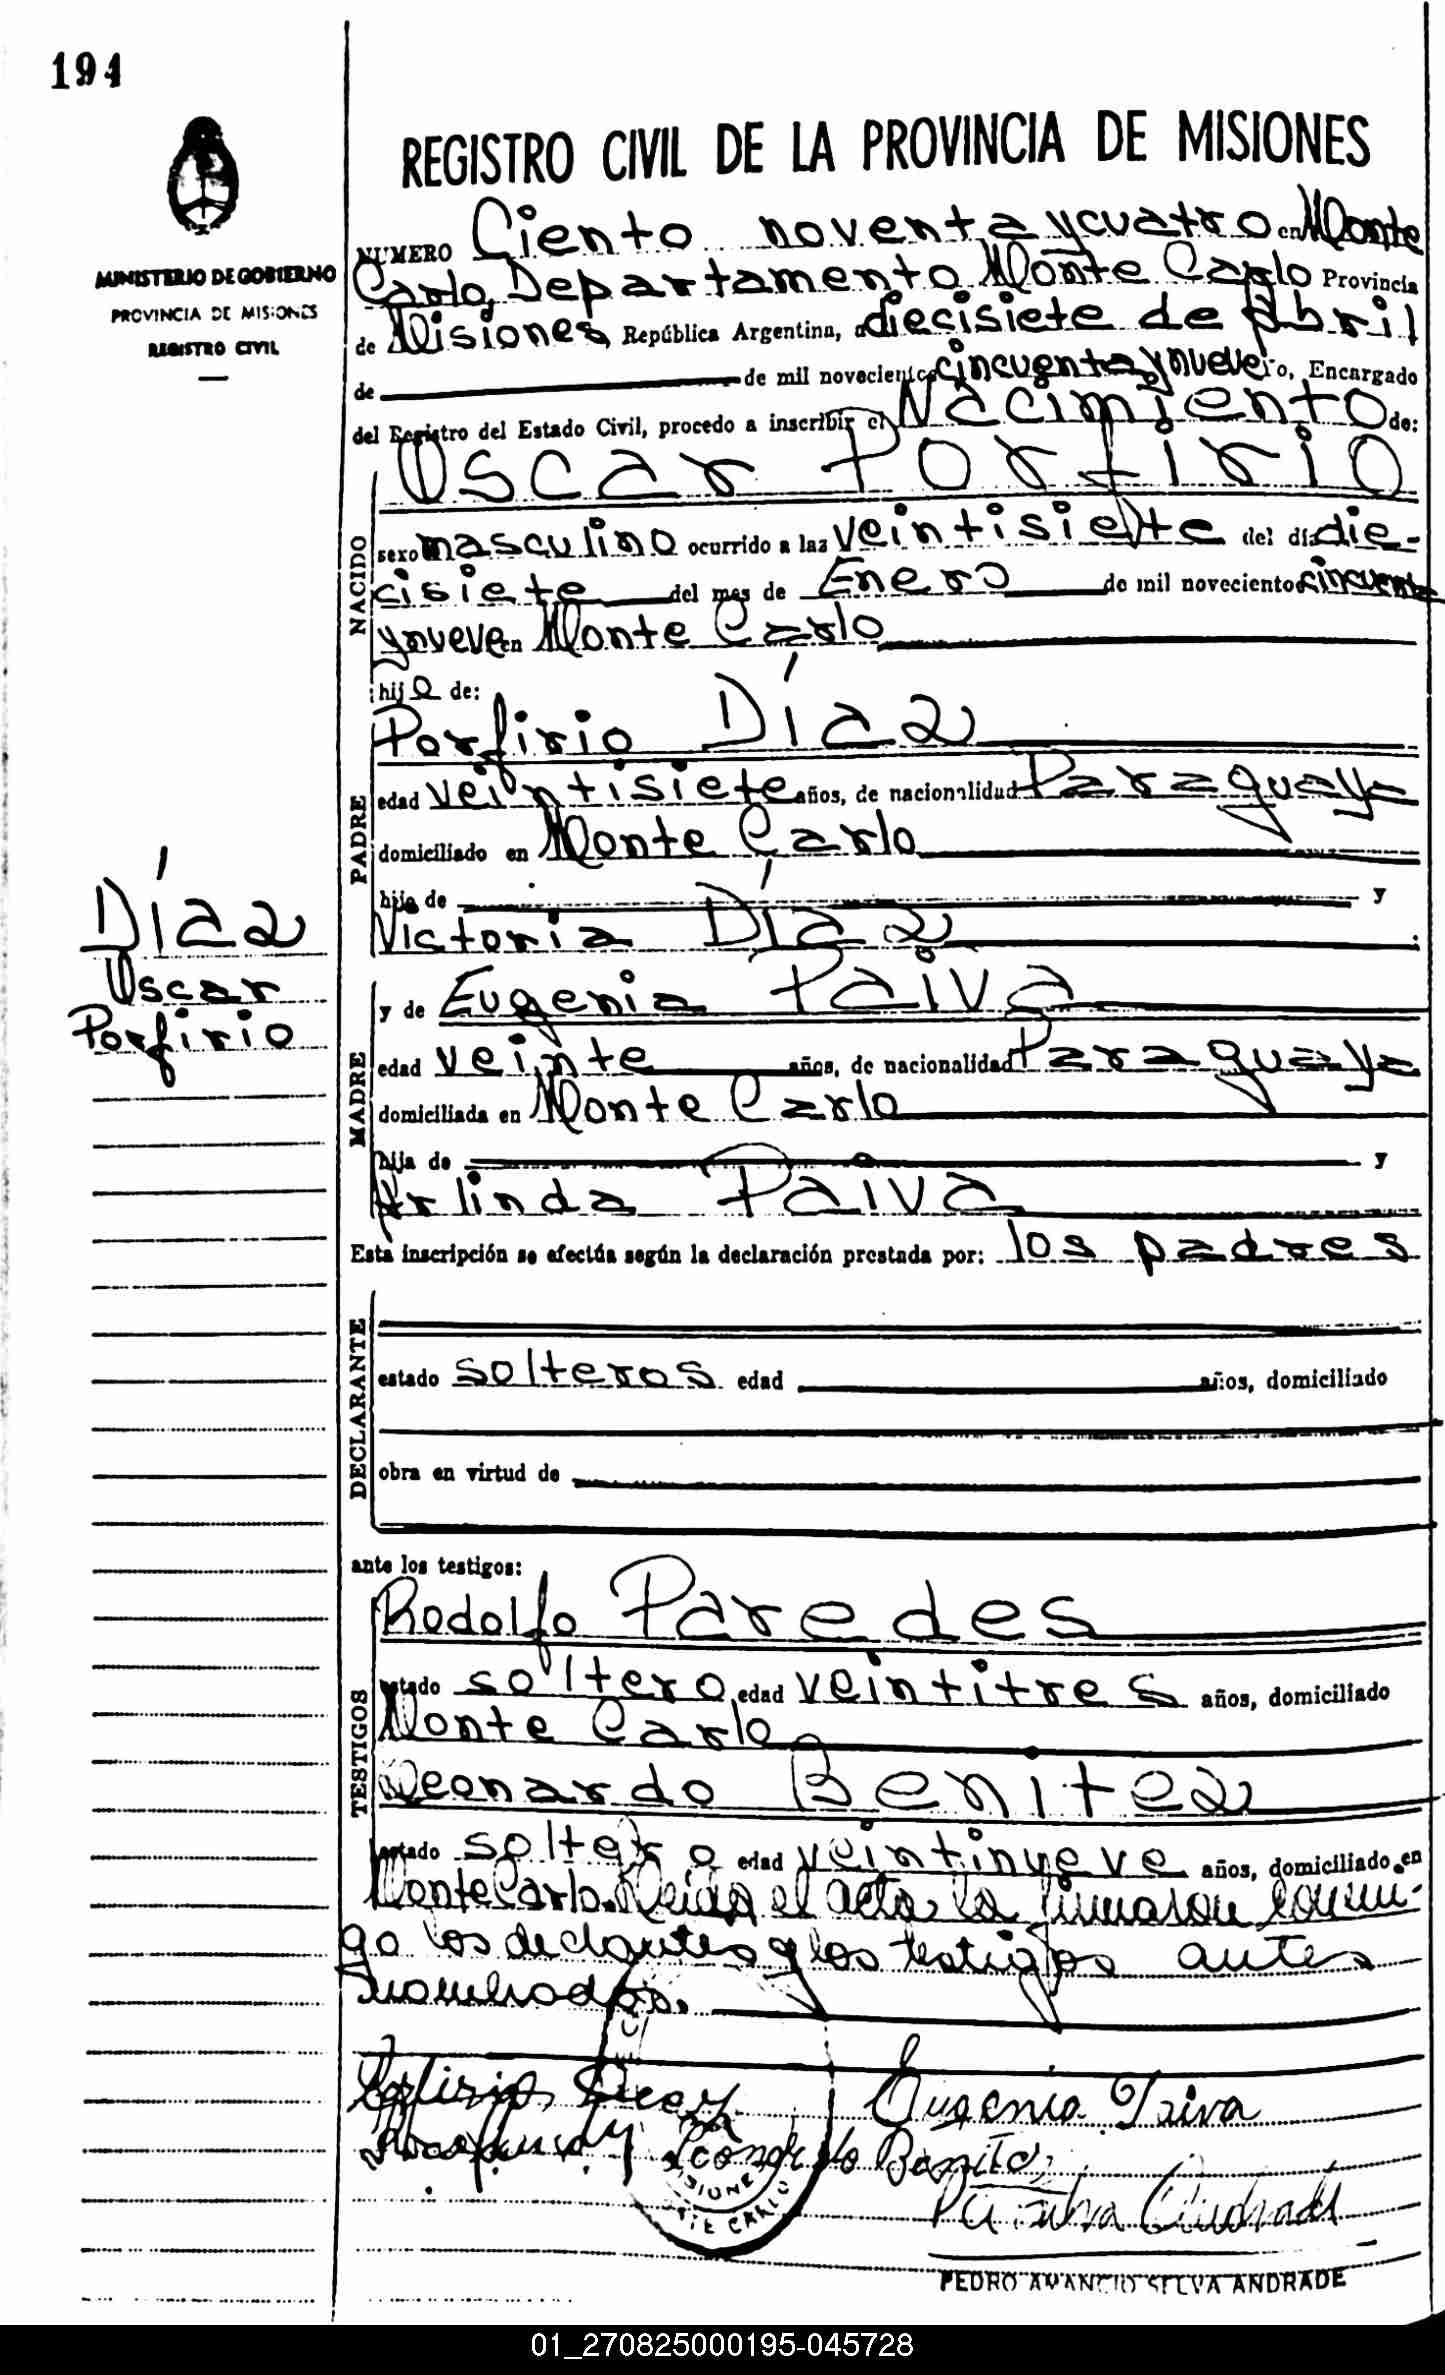 194
REGISTRO CIVIL DE LA PROVINCIA DE MISIONES
MINISTERIO DE GOBIERNO
PROVINCIA DE MISIONES
REGISTRO CIVIL
NUMERO Ciento noventa y cuatro en Monte
Carlo, Departamento Monte Carlo Provincia
de Misiones República Argentina, a diecisiete de Abril
de de mil novecientos cincuenta y nueve Encargado
del Registro del Estado Civil, procedo a inscribir el Nacimiento de:
Oscar Porfirio
NACIDO
sexo masculino ocurrido a las veintisiete del día die-
cisiete del mes de Enero de mil novecientos cincuenta
y nueve en Monte Carlo
hijo de:
Porfirio Díaz
PADRE
edad veintisiete años, de nacionalidad Paraguaya
domiciliado en Monte Carlo
hijo de y
Victoria Díaz
Díaz
Oscar
Porfirio
y de Eugenia Paiva
MADRE
edad veinte años, de nacionalidad Paraguaya
domiciliada en Monte Carlo
hija de y
Arlinda Paiva
Esta inscripción se efectúa según la declaración prestada por: los padres
DECLARANTE
estado solteros edad años, domiciliado
obra en virtud de
ante los testigos:
Rodolfo Paredes
TESTIGOS
estado soltero edad veintitres años, domiciliado
Monte Carlo
Leonardo Benitez
estado soltero edad veintinueve años, domiciliado en
Monte Carlo. Leida el acta la firmaron conmi-
go los declantes y los testigos antes
nombrados.
Porfirio Eugenia Paiva
Leonardo Benitez
MISIONES
MONTE CARLO
PEDRO AMANCIO SILVA ANDRADE
01_270825000195-045728